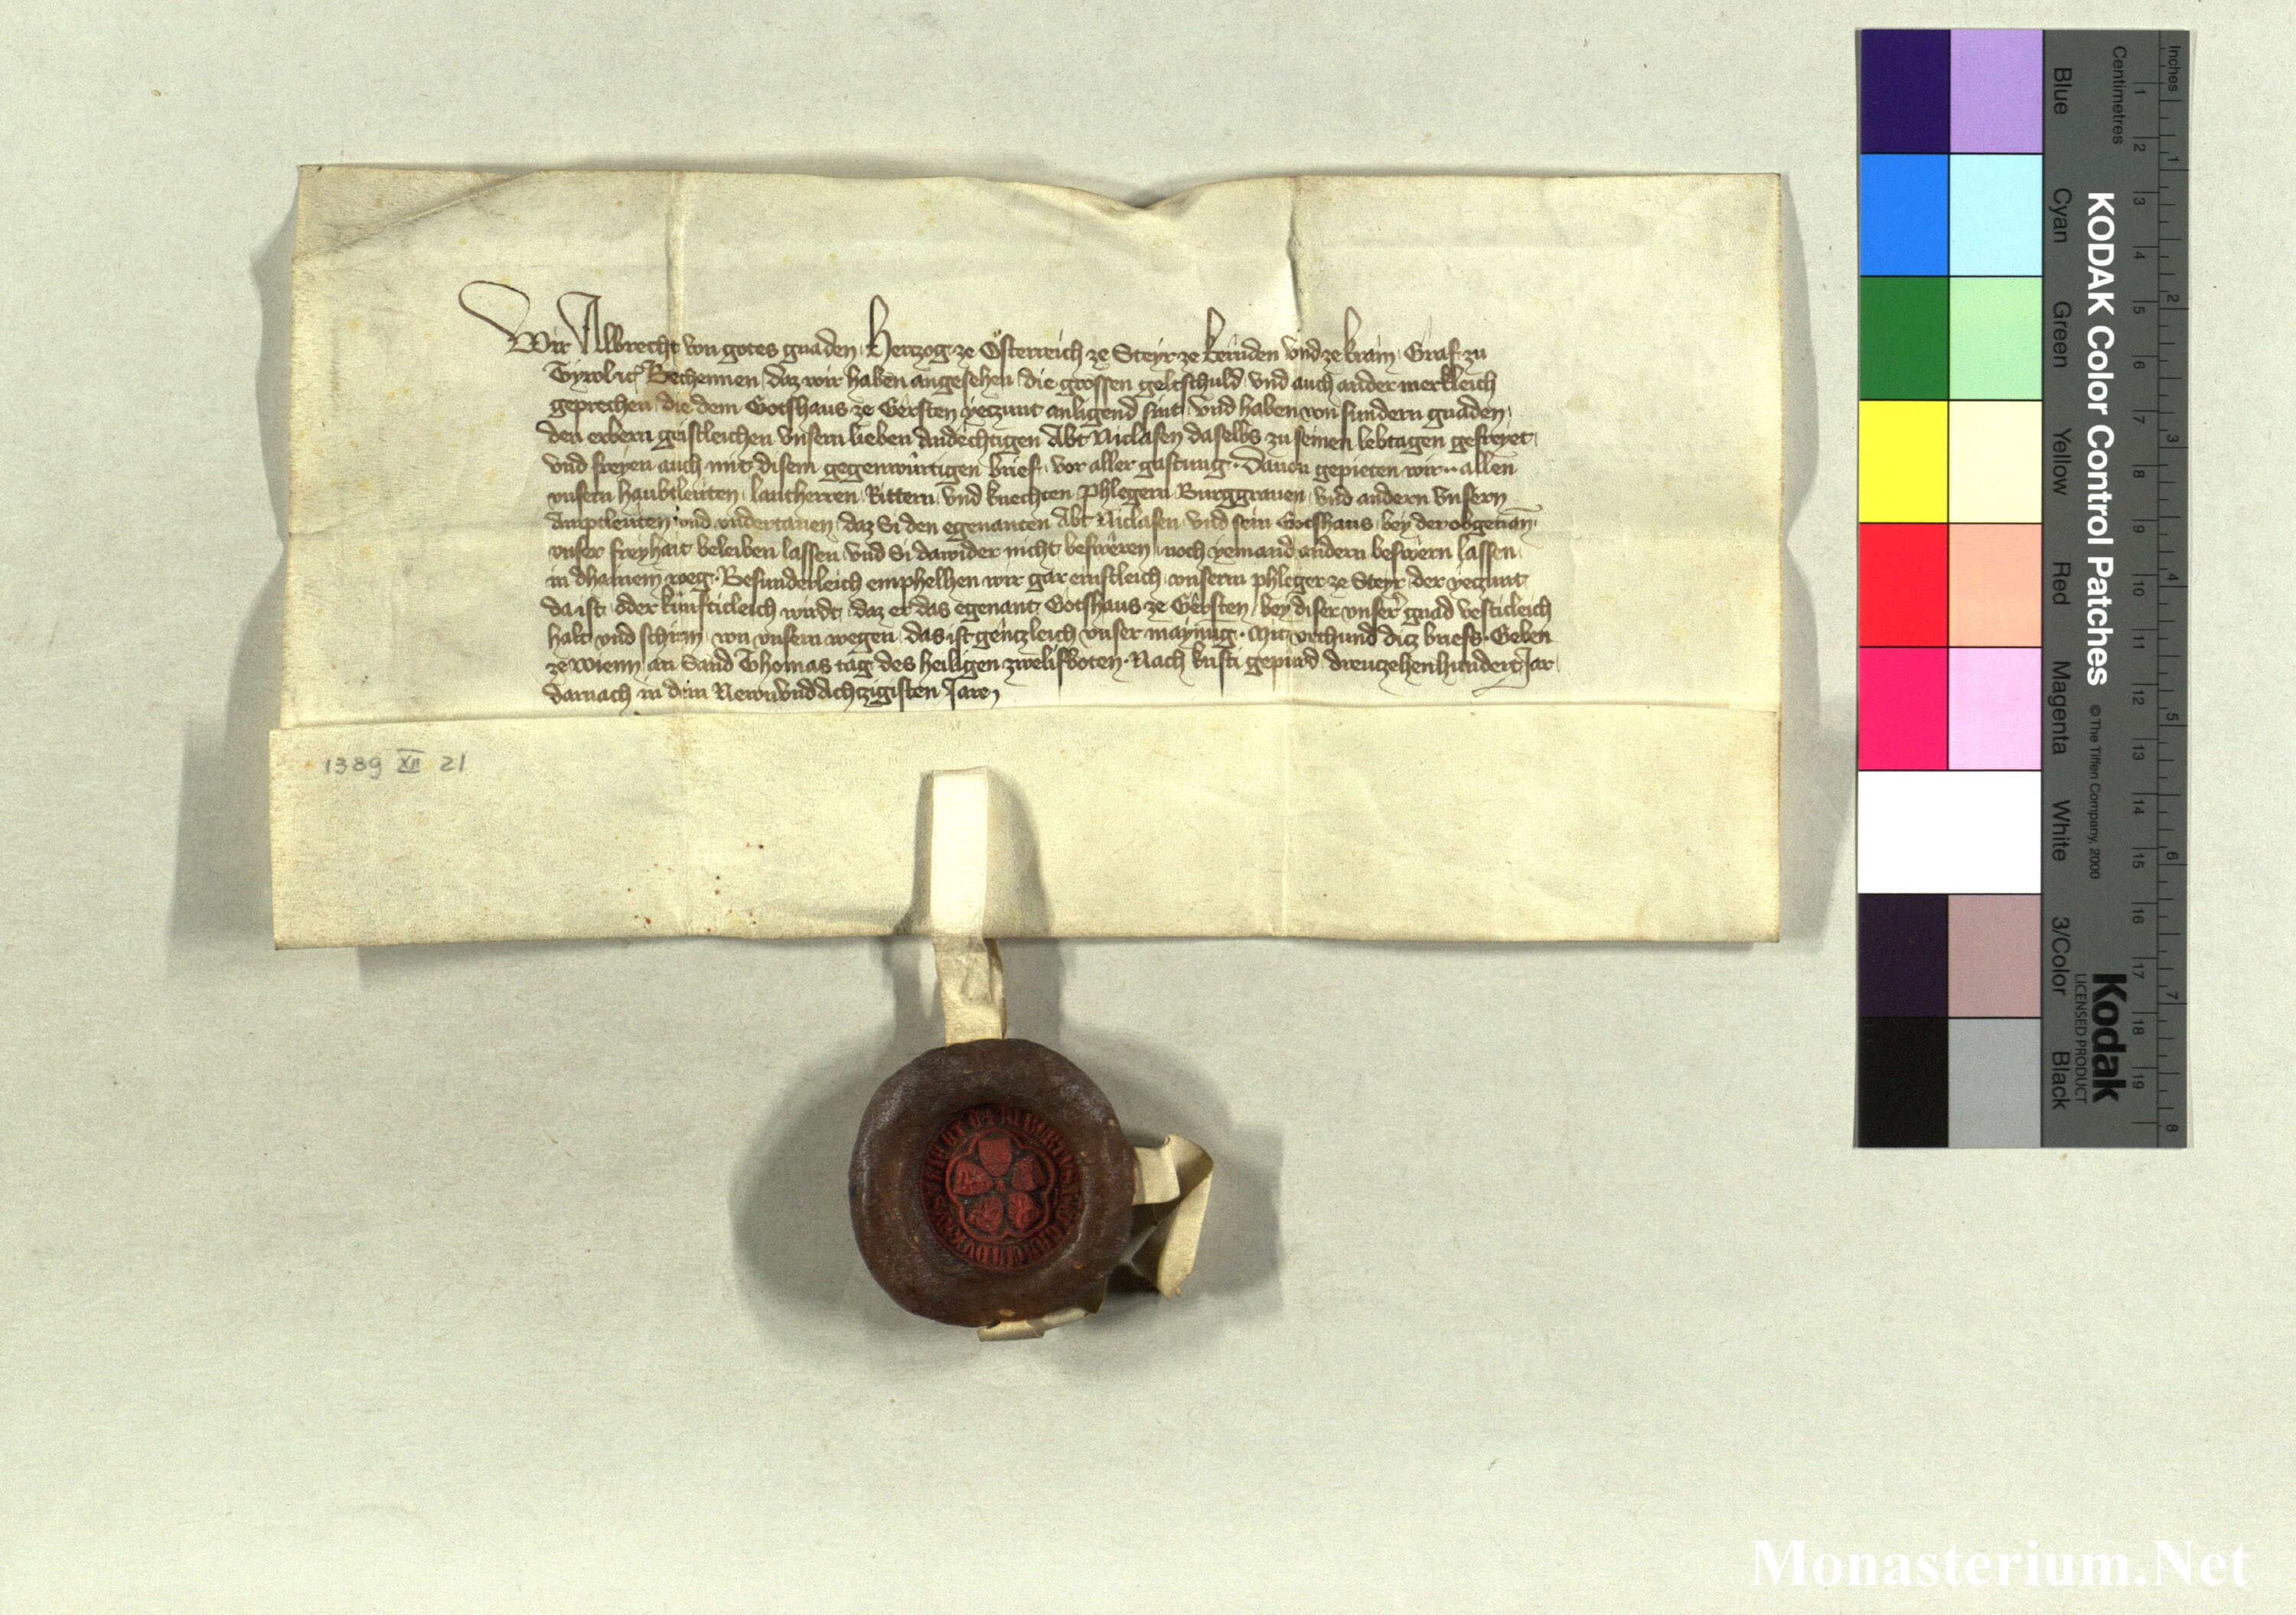 Wir Albrecht von gotes gnaden Hertzog ze Österreich ze Steyr ze kernden vnd ze krain Graf zu
Tyrol ꝛc Bechennen daz wir haben angesehen die grossen geltschuld vnd auch ander merkleich
geprechen die dem Gotshaus ze Gersten yeczunt anligend sint vnd haben von sundern gnaden
den erbern geistleichen vnsern lieben andechtigen Abt Niclasen daselbs zu seinen lebtagen gefreyet
vnd freyen auch mit disem gegenwürtigen brief vor aller gastung. Dauon gepieten wir allen
vnsern haubtleuten lantherren Rittern vnd knechten phlegern Burggrauen vnd andern vnsern
Amptleuten vnd vndertanen daz Si den egenanten Abt Niclasen vnd sein Gotshaus bey der obgenan
vnser freyhait beleiben lassen vnd Si dawider nicht beswëren noch yemand andern beswërn lassen
in dhainem weg. Besunderleich emphelhen wir gar ernstleich vnserm phleger ze Steyr der yeczunt
da ist oder künfticleich wirdt daz er das egenant Gotshaus ze Gërsten bey diser vnser gnad vesticleich
halt vnd schirm von vnsern wegen das ist gëntzleich vnser maynung. Mit vrchund ditz briefs. Geben
ze wienn an Sand Thomas tag des heiligen zwelifboten. Nach kristi gepurd dreuczehenhundert Jar
darnach in dem NewnvndAchtzigisten Jare
1389 XII 21
Inches
Centimetres
KODAK Color Control Patches
© The Tiffen Company, 2000
Kodak
LICENSED PRODUCT
Blue
Cyan
Green
Yellow
Red
Magenta
White
3/Color
Black
1 2 3 4 5 6 7 8 9 10 11 12 13 14 15 16 17 18 19
1 2 3 4 5 6 7 8
Monasterium.Net